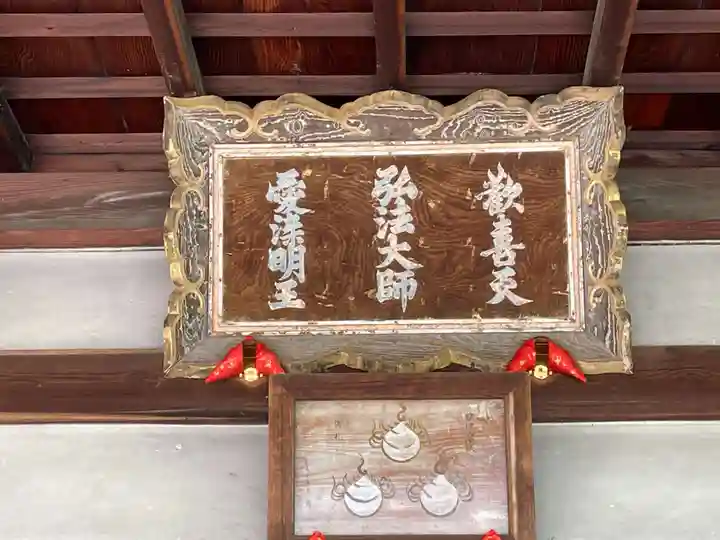 歡喜天
弘法大師
愛染明王